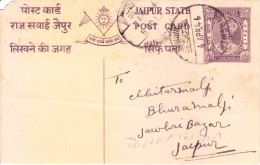 पोस्ट कार्ड
राज सवाई जैपुर
लिखने की जगह
JAIPUR STATE
POST CARD
सिर्फ़ पता
Chhitarmalji
Bhuramalji
Jawhri Bazar
Jaipur